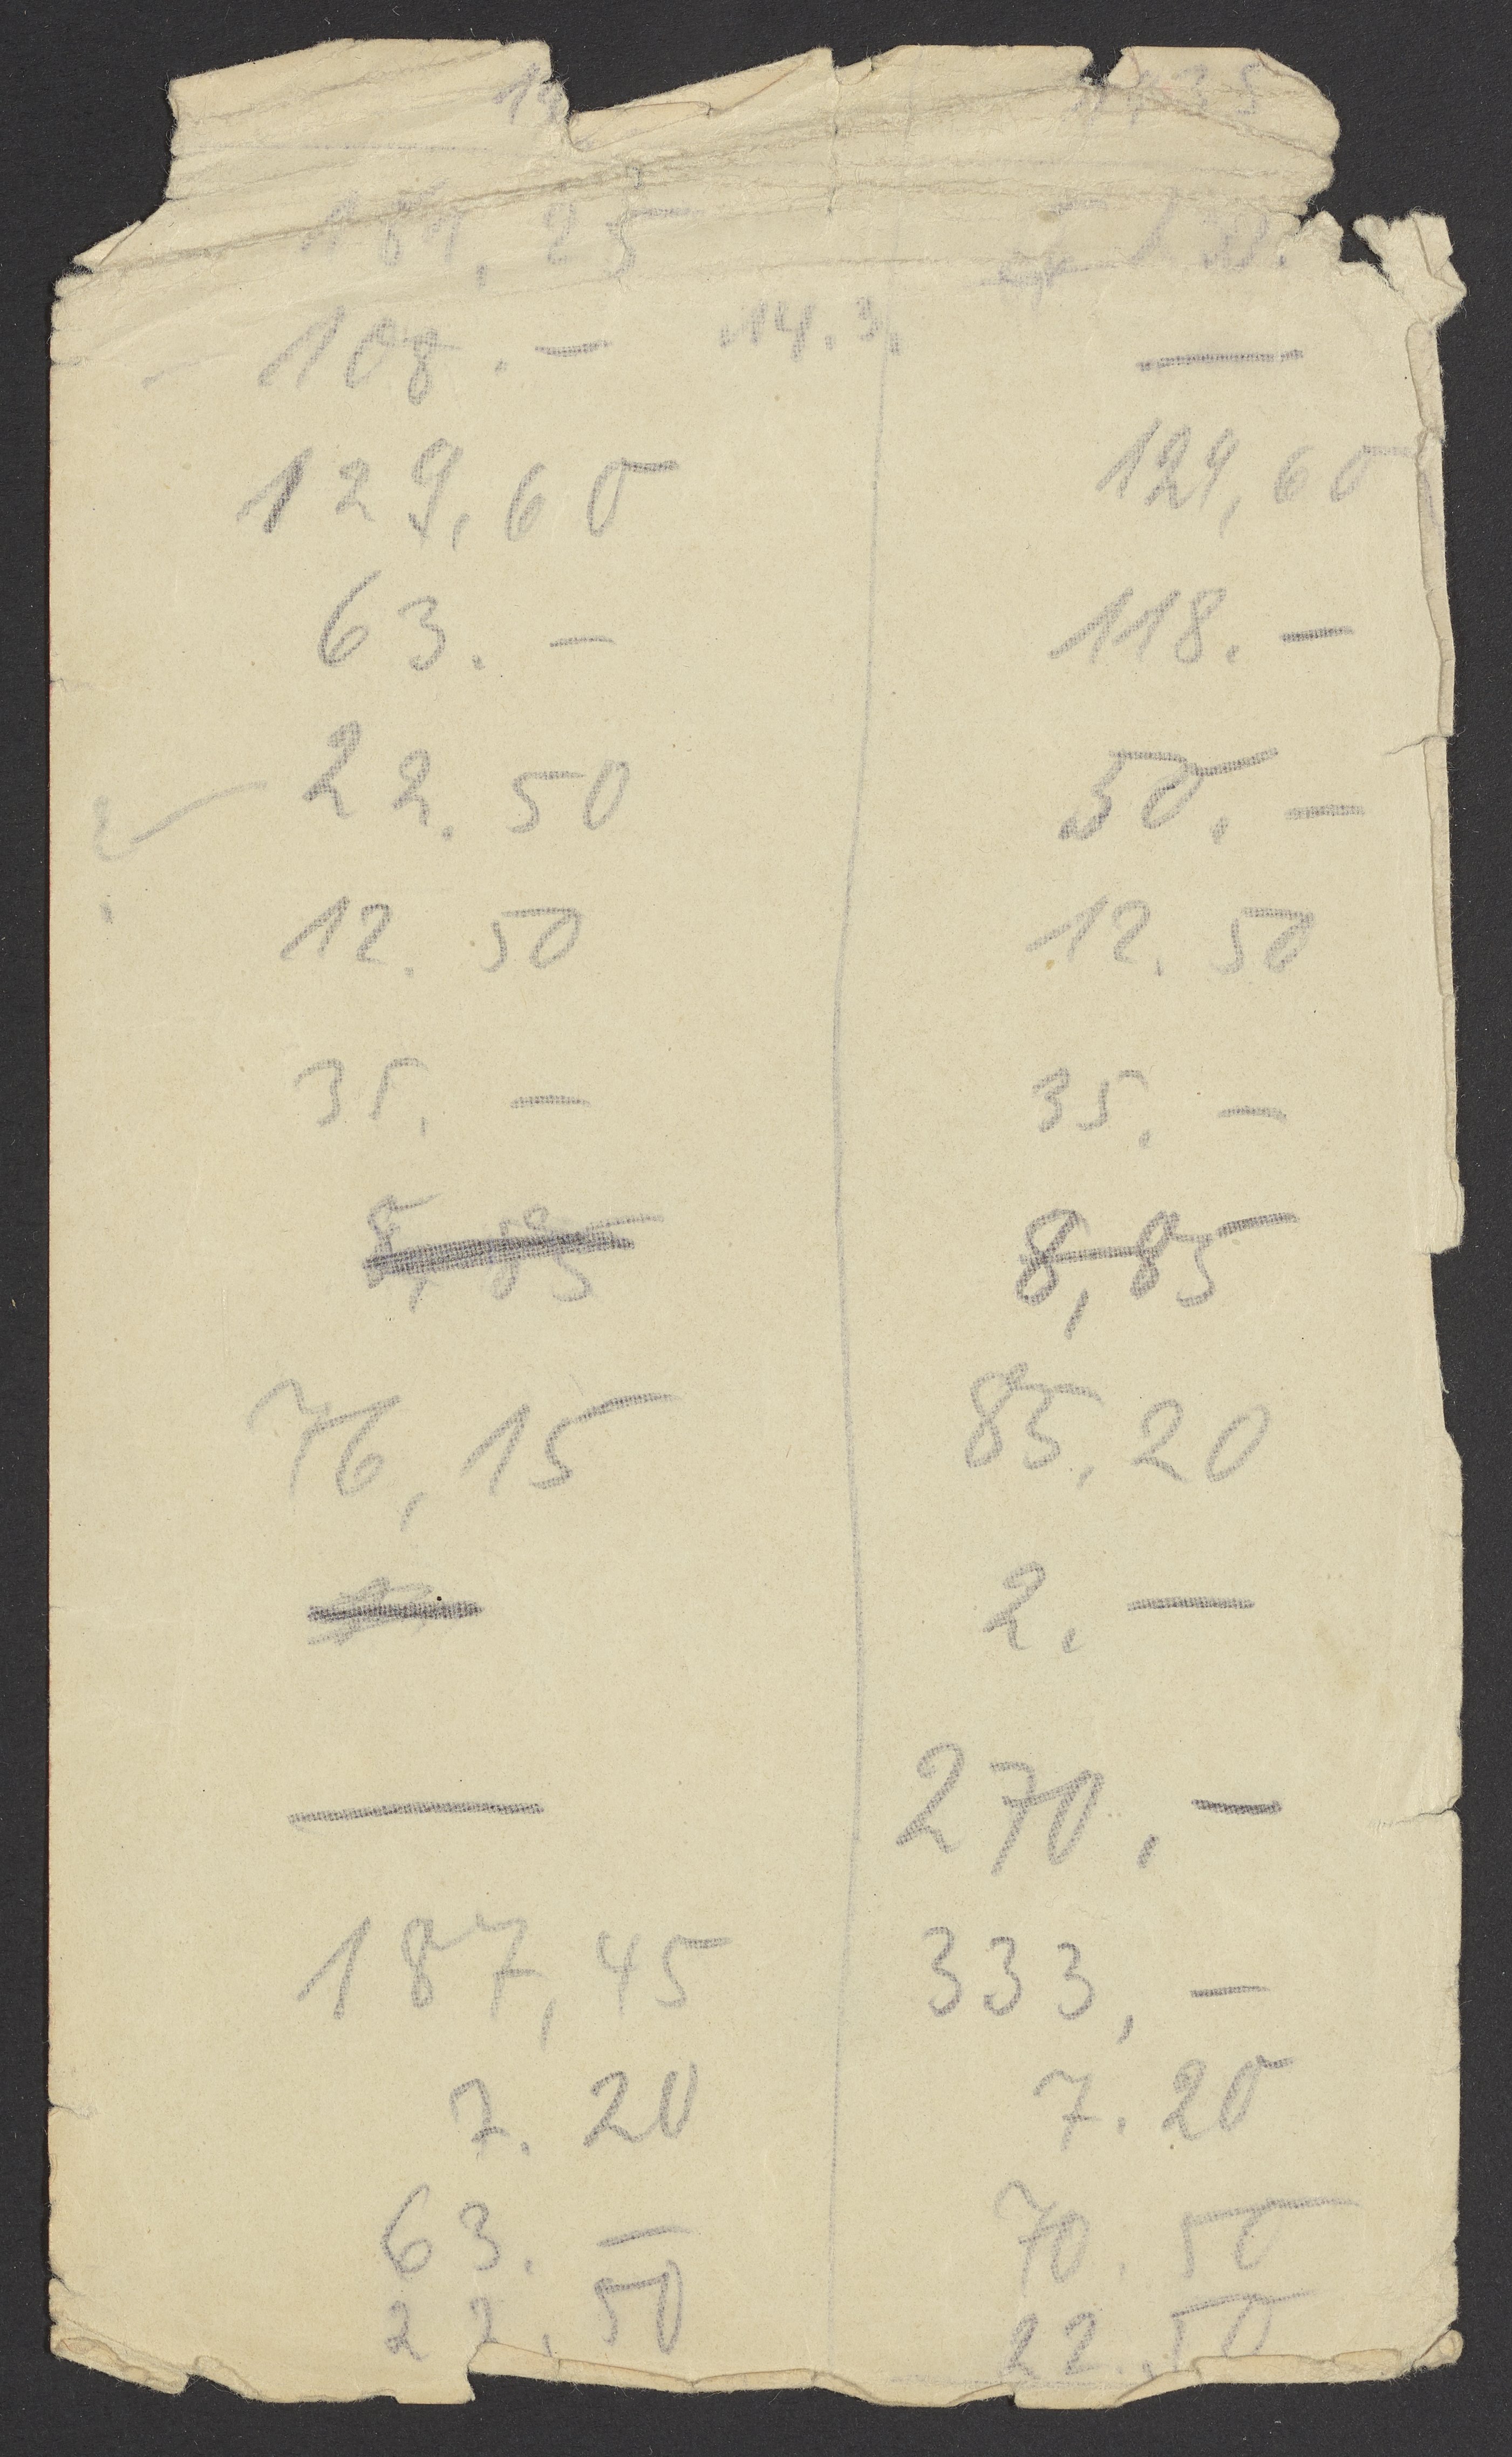 108.— 14.3. —
129,60 129,60
63.— 118.—
22.50 50.—
12.50 12.50
35.— 35.—
8,85 8,85
76,15 85,20
2.—
— 270.—
187,45 333,—
7.20 7.20
63.— 70.50
22,50 22.50